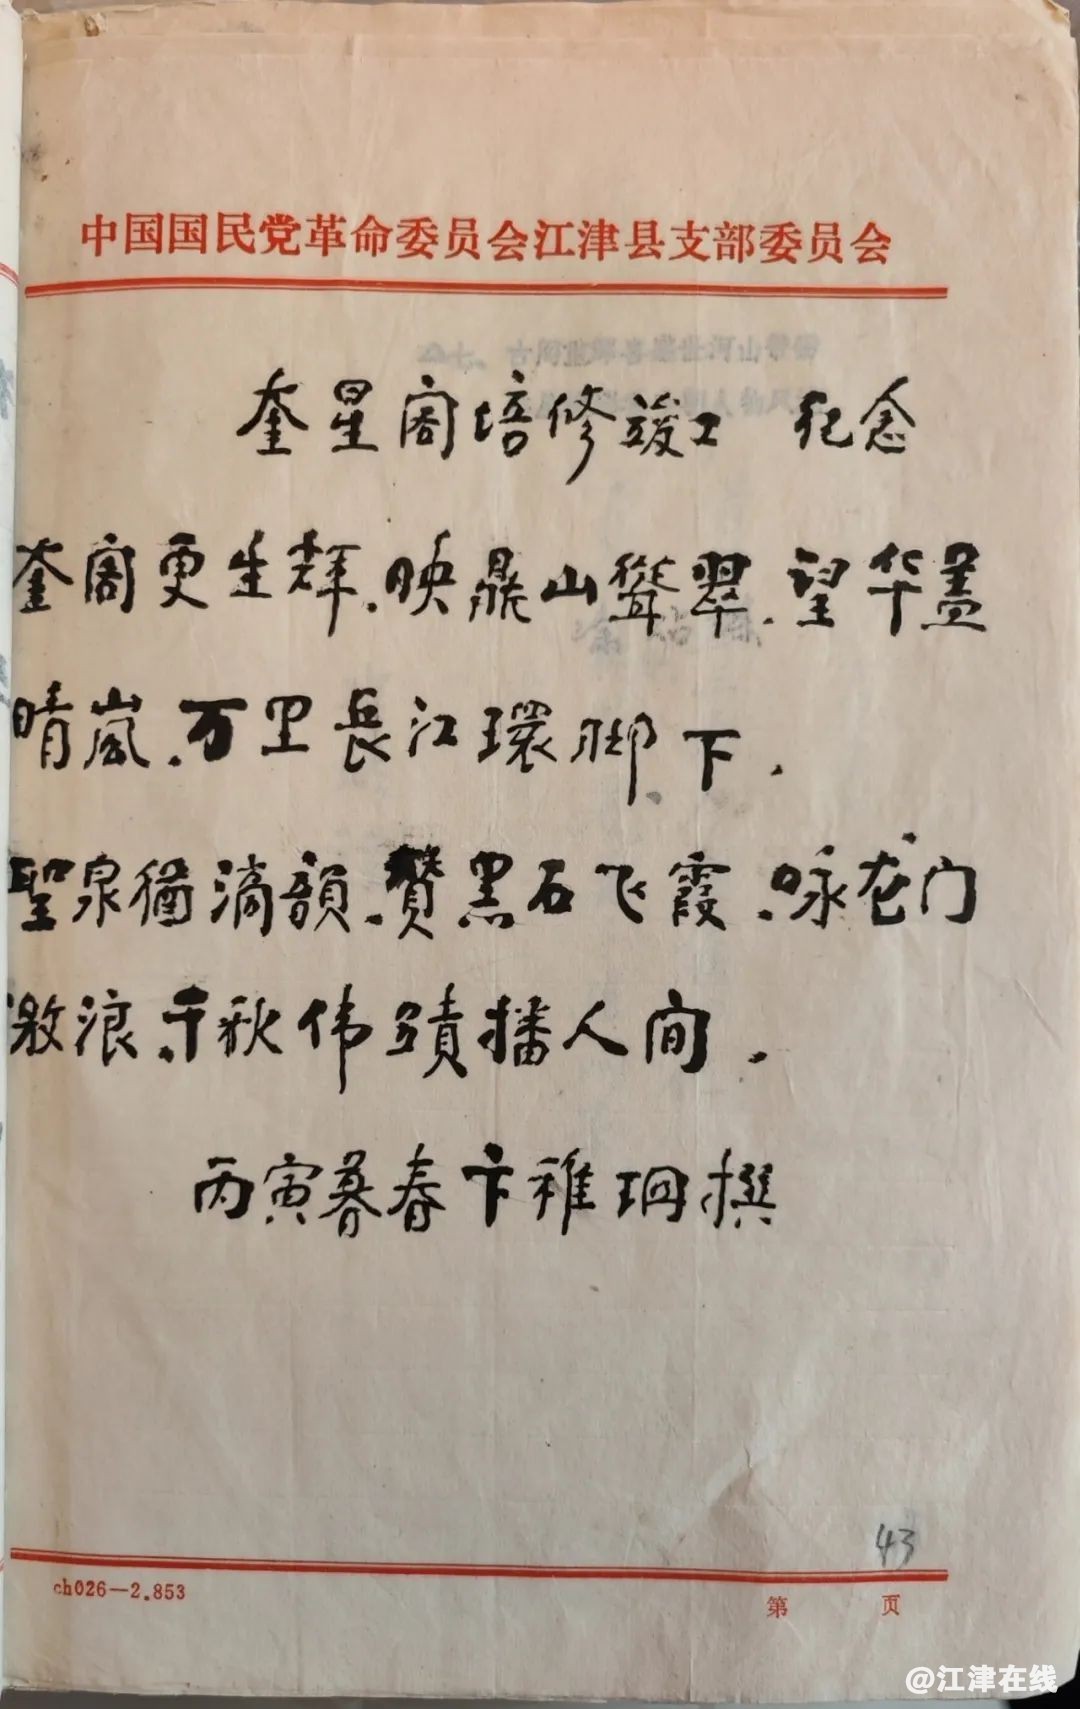 中国国民党革命委员会江津县支部委员会
奎星阁培修竣工 纪念
奎阁更生辉.映鼎山耸翠.望华盖
晴嵐.万里長江環脚下.
聖泉猶滴韻.赞黑石飞霞.咏龙门
激浪.千秋伟績播人间.
丙寅暮春卞稚珊撰
43
ch026-2.853
第 页
@江津在线